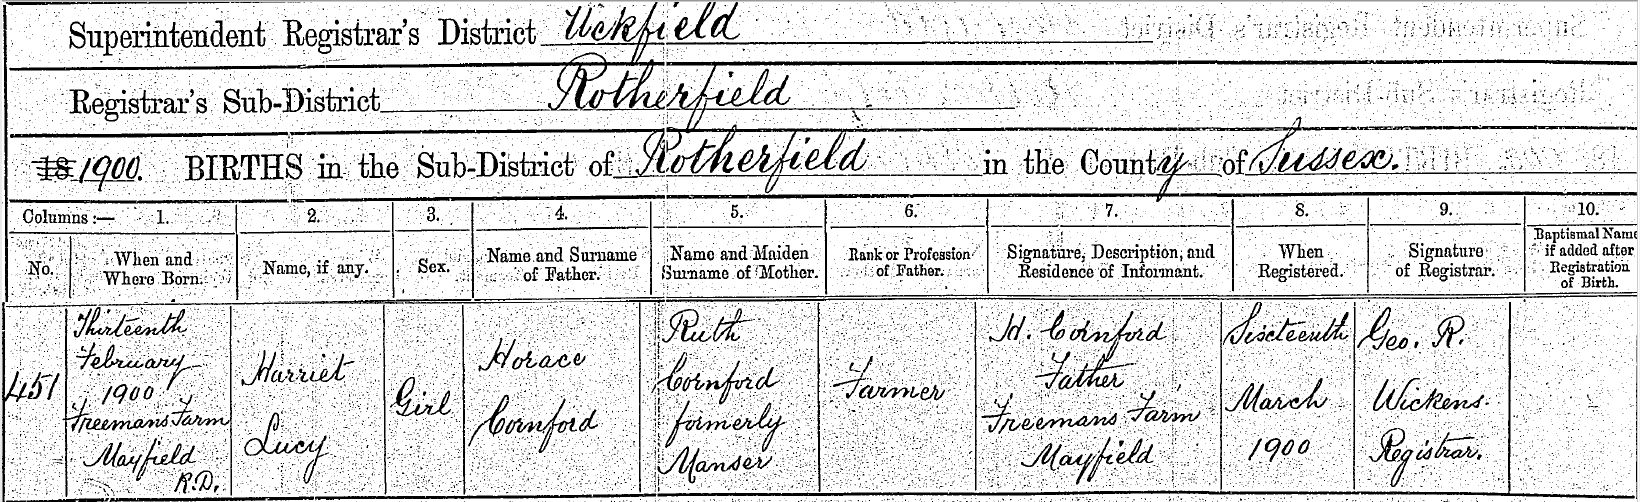 Superintendent Registrar's District Uckfield
Registrar's Sub-District Rotherfield
18 1900. BIRTHS in the Sub-District of Rotherfield in the County of Sussex.
Columns:— 1. 2. 3. 4. 5. 6. 7. 8. 9. 10.
No.
When and
Where Born.
Name, if any.
Sex.
Name and Surname
of Father.
Name and Maiden
Surname of Mother.
Rank or Profession
of Father.
Signature, Description, and
Residence of Informant.
When
Registered.
Signature
of Registrar.
Baptismal Name
if added after
Registration
of Birth.
451
Thirteenth
February
1900
Freemans Farm
Mayfield
R.D.
Harriet
Lucy
Girl
Horace
Cornford
Ruth
Cornford
formerly
Manser
Farmer
H. Cornford
Father
Freemans Farm
Mayfield
Sixteenth
March
1900
Geo. R.
Wickens.
Registrar.